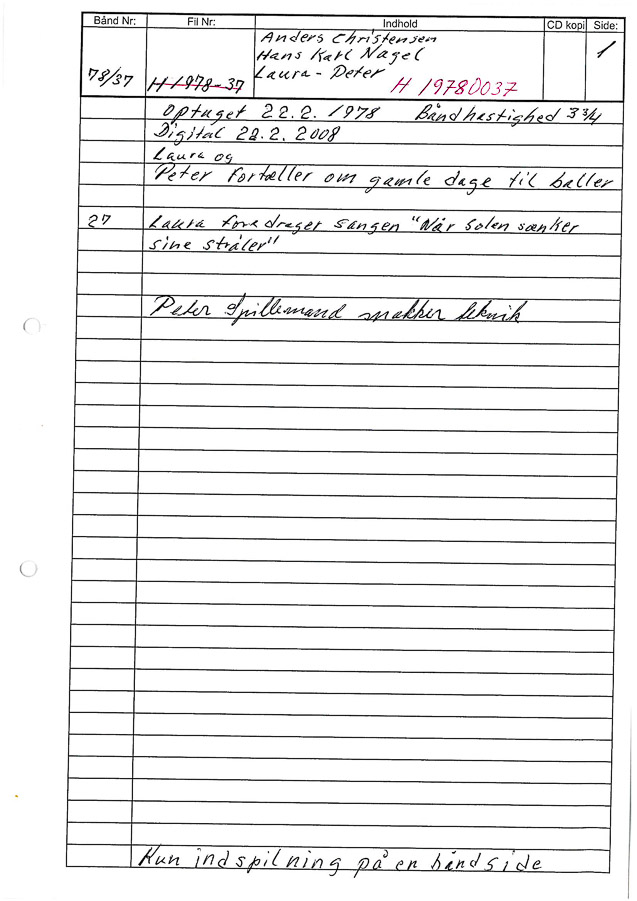 Bånd Nr: Fil Nr: Indhold CD kopi Side:
Anders Christensen
Hans Karl Nagel
Laura - Peter
78/37 H 1978-37 H 19780037 1
Optaget 22.2. 1978 Båndhastighed 3 3/4
Digital 22.2. 2008
Laura og
Peter fortæller om gamle dage til baller
27 Laura foredrager sangen "Når solen sænker
sine stråler"
Peter Spillemand snakker teknik
Kun indspilning på en båndside